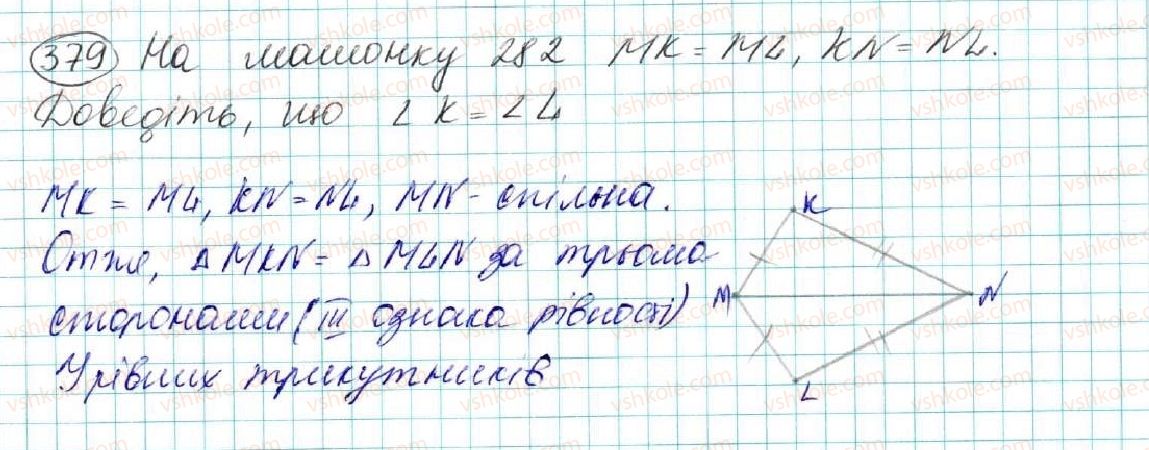 379 На малюнку 282 MK = ML, KN = NL.
Доведіть, що ∠K = ∠L
MK = ML, KN = NL, MN - спільна.
Отже, △MKN = △MLN за трьома
сторонами (III ознака рівності)
У рівних трикутників
K
M
N
L